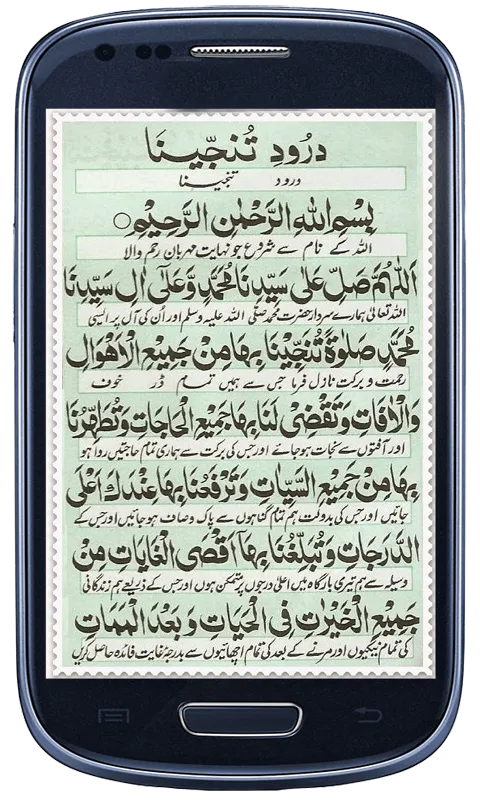 درُودِ تُنجّیِنَا
درود تنجینا
بِسْمِ اللهِ الرَّحْمٰنِ الرَّحِيْمِ○
اللہ کے نام سے شروع جو نہایت مہربان رحم والا
اَللّٰهُمَّ صَلِّ عَلٰى سَيِّدِنَا مُحَمَّدٍ وَّعَلٰٓى اٰلِ سَيِّدِنَا
اللہ تعالیٰ ہمارے سردار حضرت محمد صلی اللہ علیہ وسلم اور اُن کی آل پر ایسی
مُحَمَّدٍ صَلٰوةً تُنَجِّيْنَا بِهَا مِنْ جَمِيْعِ الْاَهْوَالِ
رحمت و برکت نازل فرما جس سے ہمیں تمام ڈر خوف
وَالْاٰفَاتِ وَتَقْضِىْ لَنَا بِهَا جَمِيْعَ الْحَاجَاتِ وَتُطَهِّرُنَا
اور آفتوں سے نجات ہوجائے اور جس کی برکت سے ہماری تمام حاجتیں روا ہو
بِهَا مِنْ جَمِيْعِ السَّيِّاٰتِ وَتَرْفَعُنَا بِهَا عِنْدَكَ اَعْلَى
جائیں اور جس کی بدولت ہم تمام گناہوں سے پاک وصاف ہوجائیں اور جس کے
الدَّرَجَاتِ وَتُبَلِّغُنَا بِهَآ اَقْصَى الْغَايَاتِ مِنْ
وسیلہ سے ہم تیری بارگاہ میں اعلیٰ درجوں پر متمکن ہوں اور جس کے ذریعے ہم زندگانی
جَمِيْعِ الْخَيْرٰتِ فِى الْحَيَاتِ وَبَعْدَ الْمَمَاتِ
کی تمام نیکیوں اور مرنے کے بعد کی تمام اچھائیوں سے بدرجۂ غایت فائدہ حاصل کریں